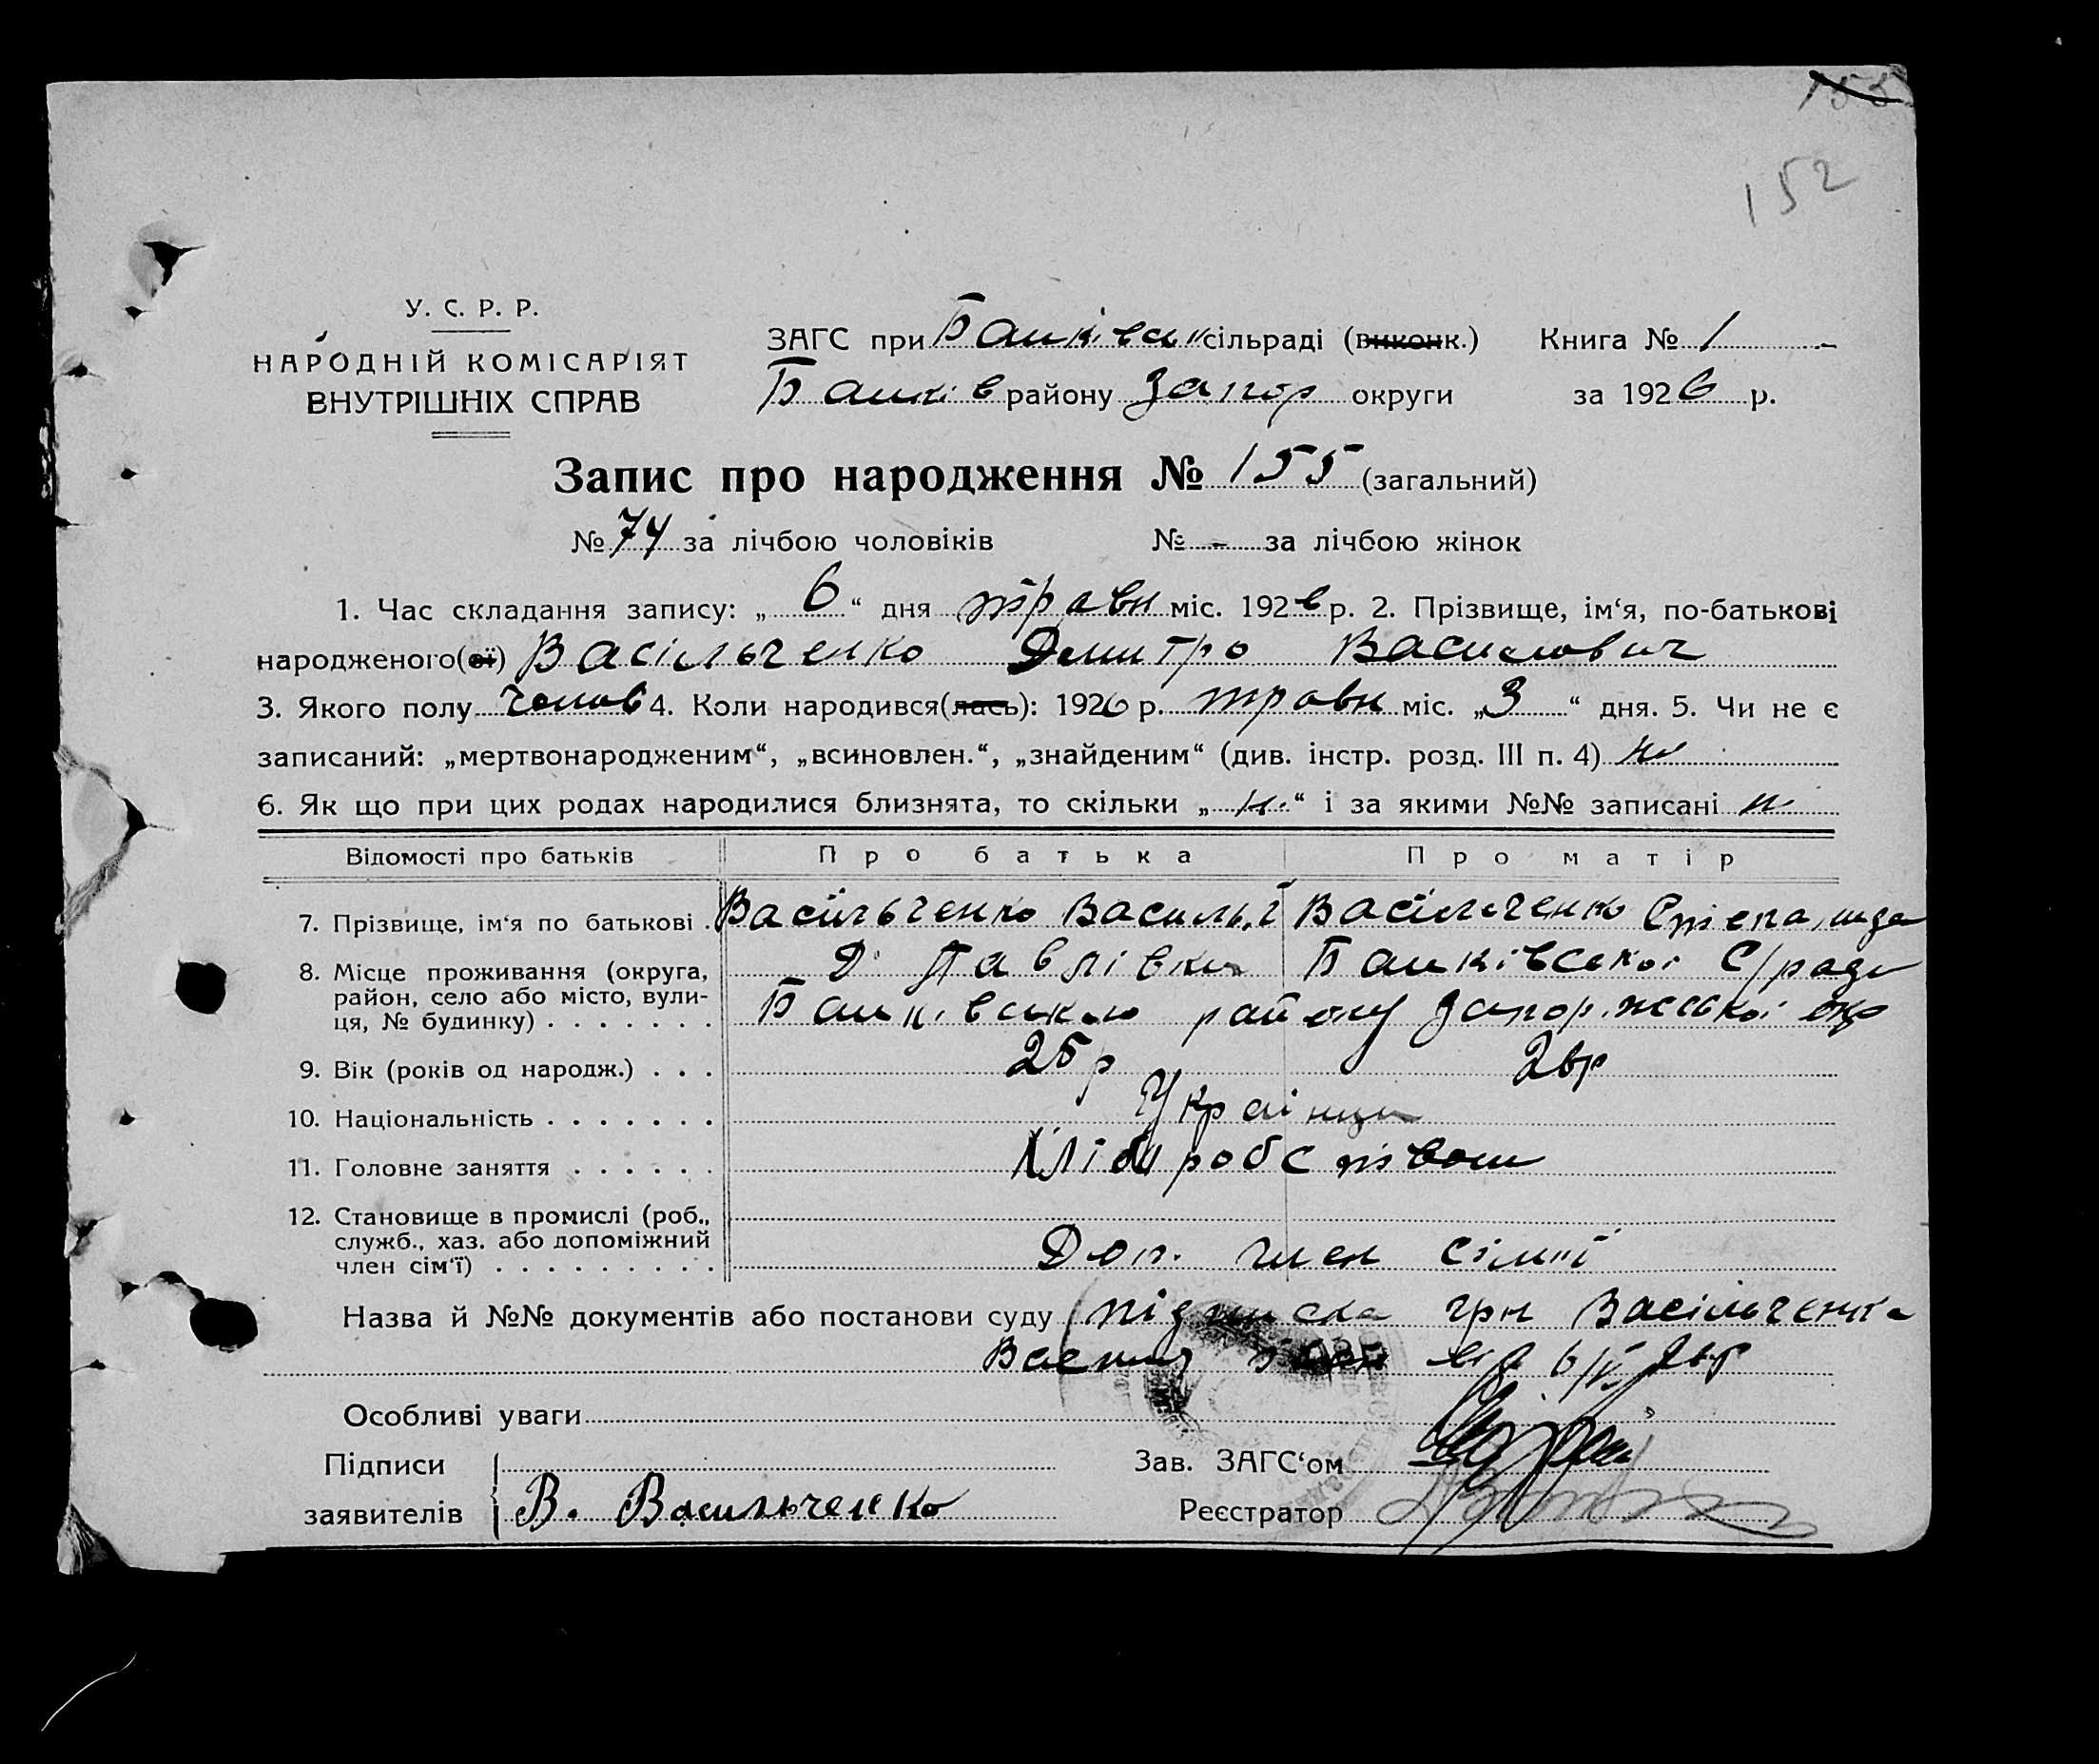 152
У. С. Р. Р.
НАРОДНІЙ КОМІСАРІЯТ
ВНУТРІШНІХ СПРАВ
ЗАГС при Балківськ сільраді (виконк.) Книга № 1
Балків району Запор округи за 1926 р.
Запис про народження № 155 (загальний)
№ 74 за лічбою чоловіків № - за лічбою жінок
1. Час складання запису: „ 6 “ дня травн міс. 1926 р. 2. Прізвище, ім‘я, по-батькові
народженого(ої) Васільченко Дмитро Василович
3. Якого полу чолов 4. Коли народився(лась): 1926 р. травн міс. „ 3 “ дня. 5. Чи не є
записаний: „мертвонародженим“, „всиновлен.“, „знайденим“ (див. інстр. розд. III п. 4) ні
6. Як що при цих родах народилися близнята, то скільки „ н. “ і за якими №№ записані н
Відомості про батьків Про батька Про матір
7. Прізвище, ім‘я по батькові . Васільченко Василь Васільченко
8. Місце проживання (округа, Д. Павлівки Балківської С/ради
район, село або місто, вули-
ця, № будинку) . . . . . . . Балківського району Запоріжської окр
9. Вік (років од народж.) . . . 25 р 26р
10. Національність . . . . . . . Українци
11. Головне заняття . . . . . . Хліборобством
12. Становище в промислі (роб.,
служб., хаз. або допоміжний
член сім‘ї) . . . . . . . . . Доп. член сімьї
Назва й №№ документів або постанови суду підписка грн Васільченка
від 6/V 26р
Особливі уваги
Підписи Зав. ЗАГС‘ом
заявителів В. Васильченко Реєстратор